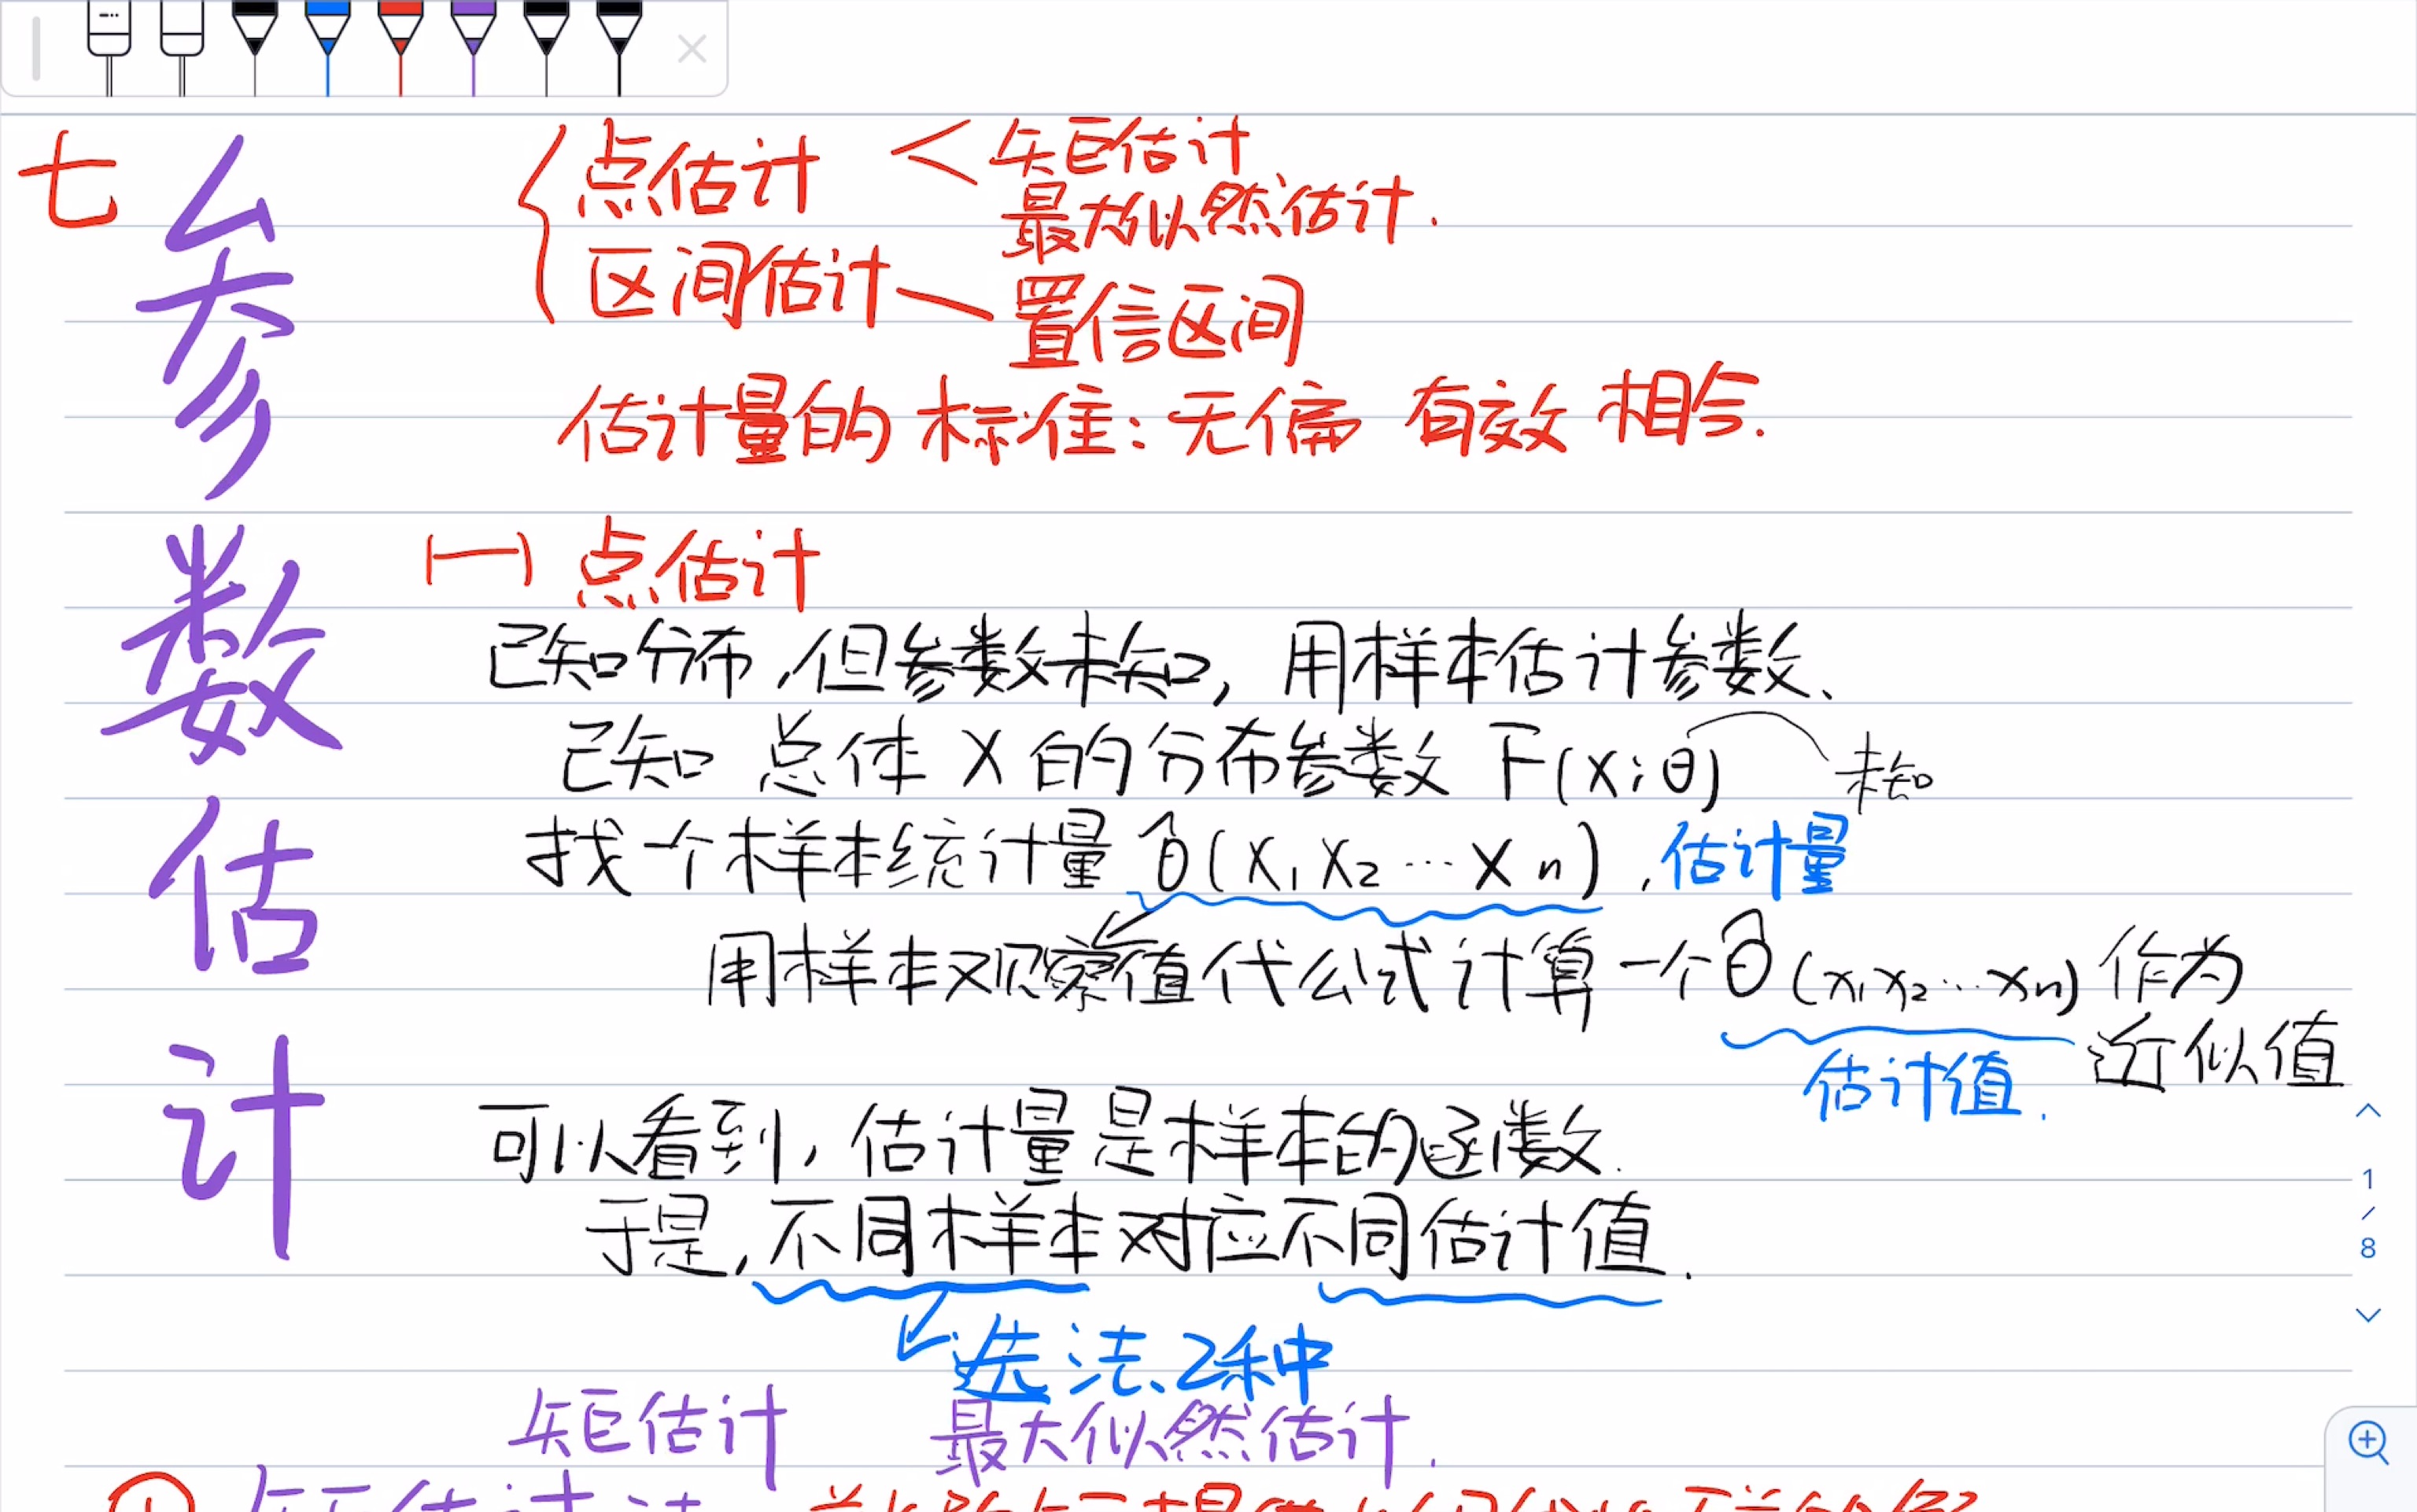 七 参数估计
点估计 < 矩估计
最大似然估计.
区间估计 — 置信区间
估计量的标准:无偏 有效 相合.
(一) 点估计
已知分布,但参数未知,用样本估计参数、
已知 总体 X 的分布参数 F(x;θ) 未知
找一个样本统计量 θ̂(X₁X₂…Xn),估计量
用样本观察值代公式计算一个θ̂(x₁x₂…xn)作为
近似值
估计值.
可以看到,估计量是样本的函数.
于是,不同样本对应不同估计值.
选法、2种
矩估计 最大似然估计.
1/8